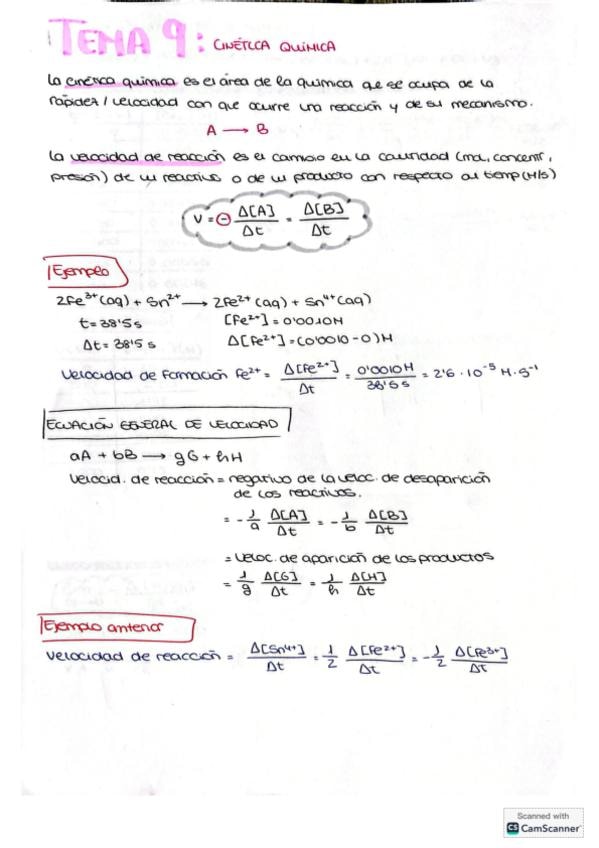 TEMA 9: CINÉTICA QUÍMICA
La cinética química es el área de la química que se ocupa de la
rápidez / velocidad con que ocurre una reacción y de su mecanismo.
A → B
La velocidad de reacción es el cambio en la cantidad (mol, concentr,
presión) de un reactivo o de un producto con respecto al tiempo (M/s)
V = - Δ[A]/Δt = Δ[B]/Δt
Ejemplo
2Fe³⁺(aq) + Sn²⁺ → 2Fe²⁺(aq) + Sn⁴⁺(aq)
t = 38'5 s [Fe²⁺] = 0'0010M
Δt = 38'5 s Δ[Fe²⁺] = (0'0010 - 0) M
Velocidad de formación Fe²⁺ = Δ[Fe²⁺]/Δt = 0'0010M/38'5 s = 2'6 · 10⁻⁵ M · s⁻¹
ECUACIÓN GENERAL DE VELOCIDAD
aA + bB → gG + hH
Velocid. de reacción = negativo de la veloc. de desaparición
de los reactivos.
= - 1/a Δ[A]/Δt = - 1/b Δ[B]/Δt
= Veloc. de aparición de los productos
= 1/g Δ[G]/Δt = 1/h Δ[H]/Δt
Ejemplo anterior
Velocidad de reacción = Δ[Sn⁴⁺]/Δt = 1/2 Δ[Fe²⁺]/Δt = - 1/2 Δ[Fe³⁺]/Δt
Scanned with
CS CamScanner